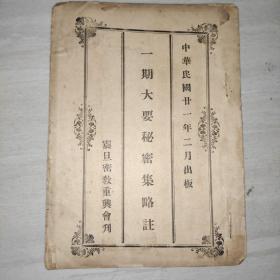 中華民國廿一年二月出板
一期大要秘密集略註
震旦密教重興會刋